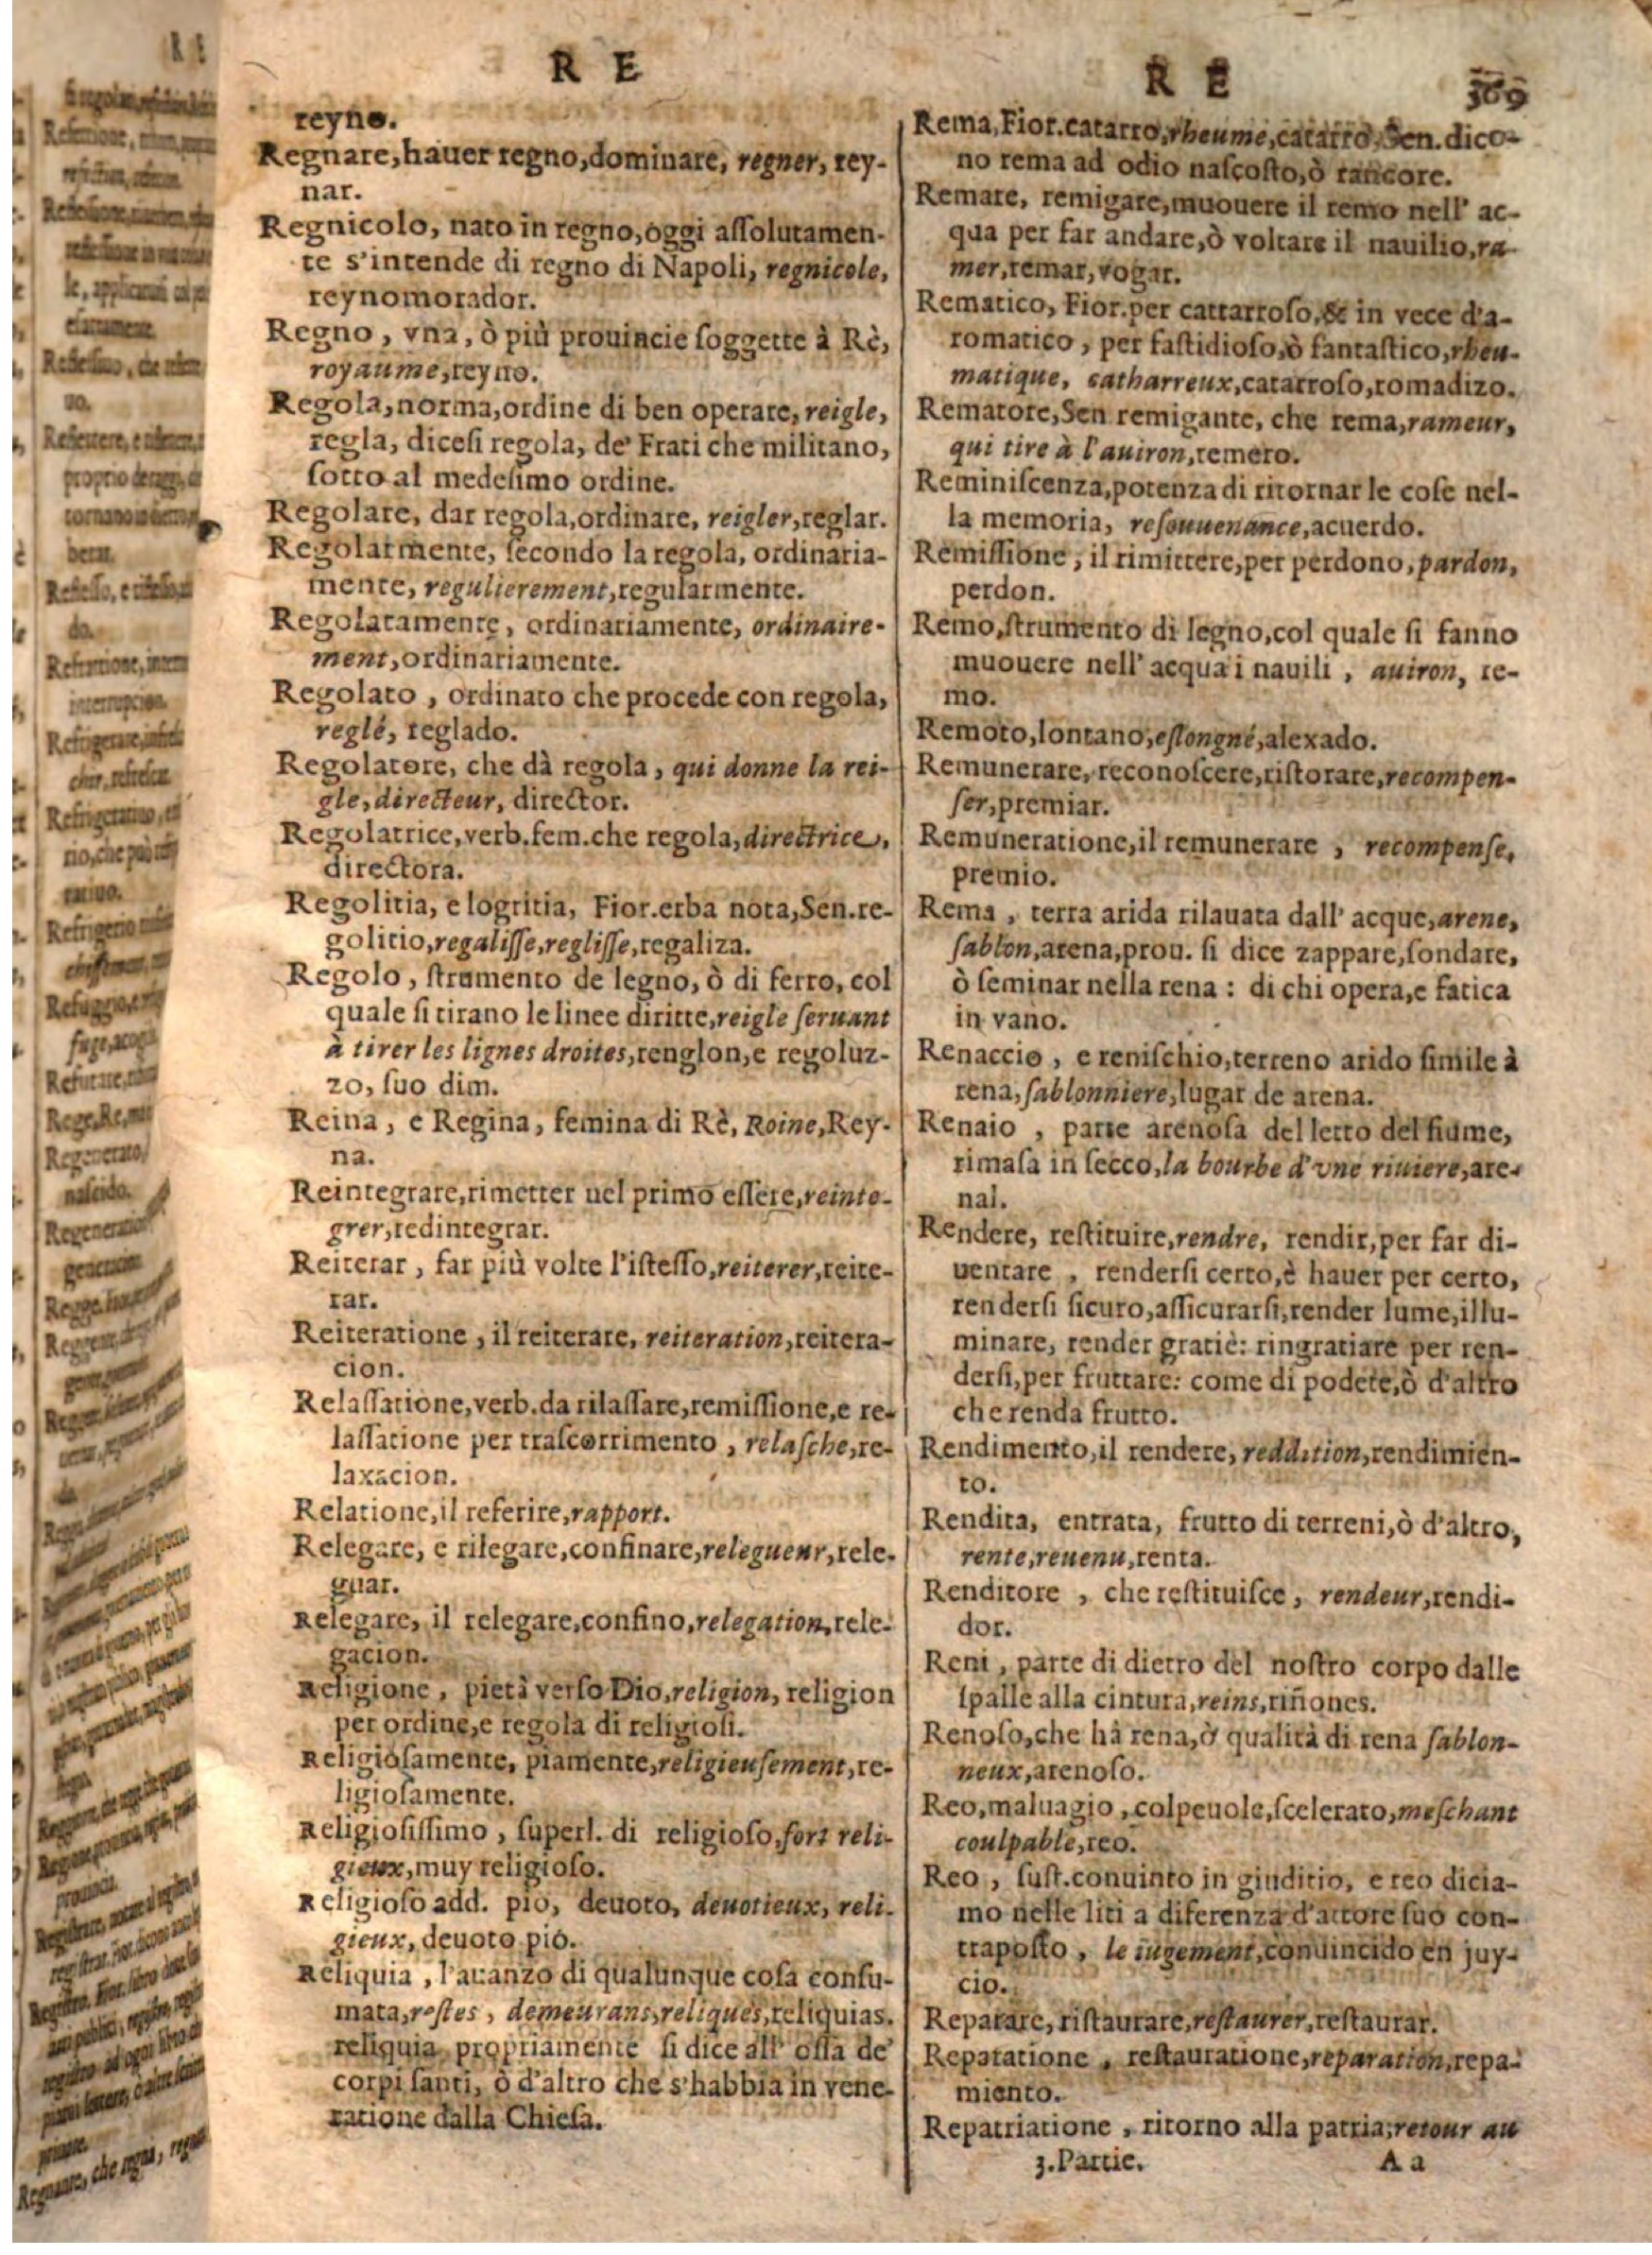 R E
reyno.
Regnare,hauer regno,dominare, regner, rey-
nar.
Regnicolo, nato in regno,oggi aſſolutamen-
te s'intende di regno di Napoli, regnicole,
reynomorador.
Regno , vna, ò più prouincie ſoggette à Rè,
royaume,reyno.
Regola,norma,ordine di ben operare, reigle,
regla, diceſi regola, de' Frati che militano,
ſotto al medeſimo ordine.
Regolare, dar regola,ordinare, reigler,reglar.
Regolarmente, ſecondo la regola, ordinaria-
mente, regulierement,regularmente.
Regolatamente , ordinariamente, ordinaire-
ment,ordinariamente.
Regolato , ordinato che procede con regola,
reglé, reglado.
Regolatore, che dà regola , qui donne la rei-
gle, directeur, director.
Regolatrice,verb.fem.che regola,directrice,
directora.
Regolitia, e logritia, Fior.erba nota,Sen.re-
golitio,regaliſſe,regliſſe,regaliza.
Regolo , ſtrumento de legno, ò di ferro, col
quale ſi tirano le linee diritte,reigle ſeruant
à tirer les lignes droites,renglon,e regoluz-
zo, ſuo dim.
Reina , e Regina, femina di Rè, Roine,Rey-
na.
Reintegrare,rimetter nel primo eſſere,reinte-
grer,redintegrar.
Reiterar , far più volte l'iſteſſo,reiterer,reite-
rar.
Reiteratione , il reiterare, reiteration,reitera-
cion.
Relaſſatione,verb.da rilaſſare,remiſſione,e re-
laſſatione per traſcorrimento , relaſche,re-
laxacion.
Relatione,il referire,rapport.
Relegare, e rilegare,confinare,relegueur,rele-
guar.
Relegare, il relegare,confino,relegation,rele-
gacion.
Religione , pietà verſo Dio,religion, religion
per ordine,e regola di religioſi.
Religioſamente, piamente,religieuſement,re-
ligioſamente.
Religioſiſſimo , ſuperl. di religioſo,fort reli-
gieux,muy religioſo.
Religioſo add. pio, deuoto, deuotieux, reli-
gieux, deuoto pio.
Reliquia , l'auanzo di qualunque coſa conſu-
mata,reſtes , demeurans,reliques,reliquias.
reliquia propriamente ſi dice all' oſſa de'
corpi ſanti, ò d'altro che s'habbia in vene-
ratione dalla Chieſa.
R E 369
Rema,Fior.catarro,rheume,catarro,Sen.dico-
no rema ad odio naſcoſto,ò rancore.
Remare, remigare,muouere il remo nell' ac-
qua per far andare,ò voltare il nauilio,ra-
mer,remar,vogar.
Rematico, Fior.per cattarroſo,& in vece d'a-
romatico , per faſtidioſo,ò fantaſtico,rheu-
matique, catharreux,catarroſo,romadizo.
Rematore,Sen remigante, che rema,rameur,
qui tire à l'auiron,remero.
Reminiſcenza,potenza di ritornar le coſe nel-
la memoria, reſouuenance,acuerdo.
Remiſſione , il rimittere,per perdono,pardon,
perdon.
Remo,ſtrumento di legno,col quale ſi fanno
muouere nell' acqua i nauili , auiron, re-
mo.
Remoto,lontano,eſlongné,alexado.
Remunerare, reconoſcere,riſtorare,recompen-
ſer,premiar.
Remuneratione,il remunerare , recompenſe,
premio.
Rema , terra arida rilauata dall' acque,arene,
ſablon,arena,prou. ſi dice zappare,fondare,
ò ſeminar nella rena : di chi opera,e fatica
in vano.
Renaccio , e reniſchio,terreno arido ſimile à
rena,ſablonniere,lugar de arena.
Renaio , parte arenoſa del letto del fiume,
rimaſa in ſecco,la bourbe d'vne riuiere,are-
nal.
Rendere, reſtituire,rendre, rendir,per far di-
uentare , renderſi certo,è hauer per certo,
renderſi ſicuro,aſſicurarſi,render lume,illu-
minare, render gratiè: ringratiare per ren-
derſi,per fruttare: come di podete,ò d'altro
che renda frutto.
Rendimento,il rendere, reddition,rendimien-
to.
Rendita, entrata, frutto di terreni,ò d'altro,
rente,reuenu,renta.
Renditore , che reſtituiſce , rendeur,rendi-
dor.
Reni , parte di dietro del noſtro corpo dalle
ſpalle alla cintura,reins,riñones.
Renoſo,che hà rena,ò qualità di rena ſablon-
neux,arenoſo.
Reo,maluagio ,colpeuole,ſcelerato,meſchant
coulpable,reo.
Reo , ſuſt.conuinto in giuditio, e reo dicia-
mo nelle liti a diferenza d'attore ſuo con-
trapoſto , le iugement,conuincido en juy-
cio.
Reparare, riſtaurare,reſtaurer,reſtaurar.
Reparatione , reſtauratione,reparation,repa-
miento.
Repatriatione , ritorno alla patria;retour au
3.Partie. A a